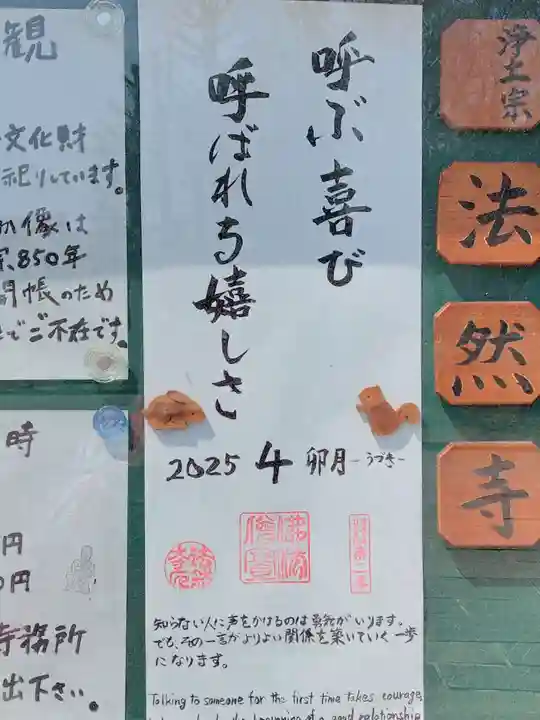 浄土宗
法然寺
呼ぶ喜び
呼ばれる嬉しさ
2025 4 卯月 -うづき-
知らない人に声をかけるのは勇気がいります。
でも、その一言がよりよい関係を築いていく一歩
になります。
Talking to someone for the first time takes courage,
観
文化財
祀りしています。
像は
850年
開帳のため
でご不在です。
時
円
0円
寺務所
出下さい。